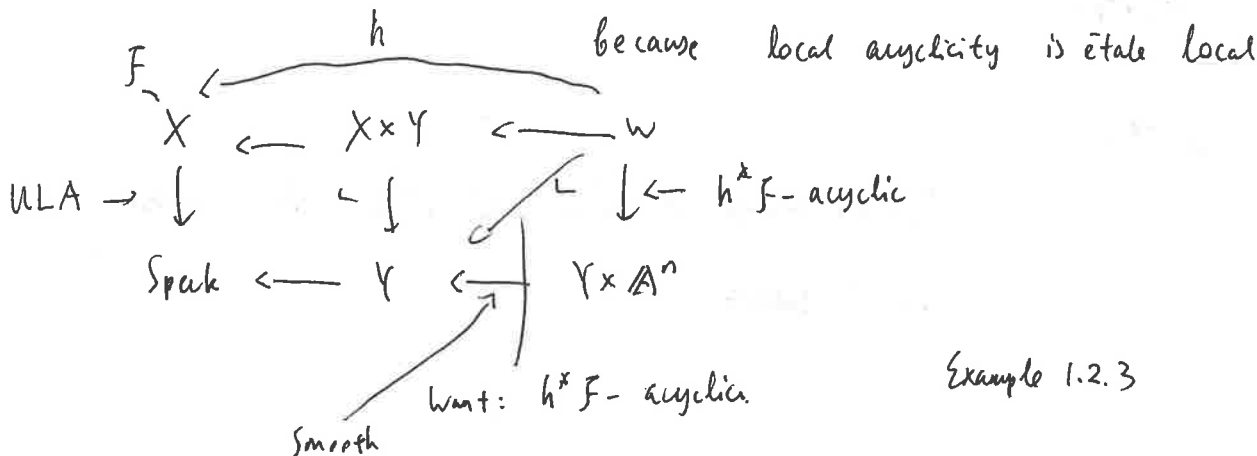 h because local acyclicity is étale local
F
X X × Y W
ULA → h* F - acyclic
Spec k Y Y × 𝔸ⁿ
Want: h* F - acyclic.
Example 1.2.3
Smooth